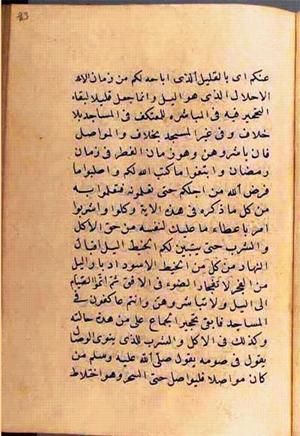 عنكم اى بالقليل الذى اباحه لكم من زمان الاه
الاحلال الذى هو اليل وانما جعل قليلا لبقاء
التحجير فيه فى المباشره للمعتكف فى المساجد بلا
خلاف وفى غير المسجد بخلاف والمواصل
فان باشروهن وهو زمان الفطر فى زمان
رمضان وابتغوا ما كتب الله لكم واطلبوا ما
فرض الله من اجلكم حتى تعلونه فتعلموا به
من كل ما ذكره فى هذه الاية وكلوا واشربوا
امر باعطاء ما عليك لنفسك من حق الاكل
والشرب حتى يتبين لكم الخيط الابيض اقبال
النهار من كل من الخيط الاسود ادبار اليل
من الفجر لانفجار الضوء فى الافق ثم اتموا الصيام
الى اليل ولا تباشروهن وانتم عاكفون فى
المساجد فابقى تحجير الجماع على من هذه حالته
وكذلك فى الاكل والشرب للذى ينوى الوصال
يقول فى صومه يقول صلى الله عليه وسلم من
كان مواصلا فليواصل حتى السحر وهو اختلاط